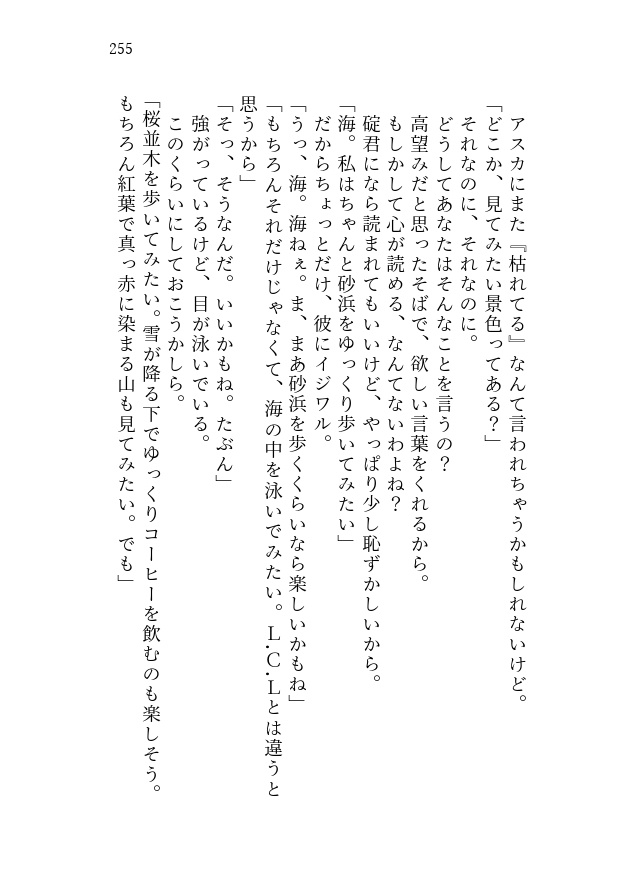 255
アスカにまた『枯れてる』なんて言われちゃうかもしれないけど。
「どこか、見てみたい景色ってある？」
それなのに、それなのに。
どうしてあなたはそんなことを言うの？
高望みだと思ったそばで、欲しい言葉をくれるから。
もしかして心が読める、なんてないわよね？
碇君になら読まれてもいいけど、やっぱり少し恥ずかしいから。
「海。私はちゃんと砂浜をゆっくり歩いてみたい」
だからちょっとだけ、彼にイジワル。
「うっ、海。海ねぇ。ま、まあ砂浜を歩くくらいなら楽しいかもね」
「もちろんそれだけじゃなくて、海の中を泳いでみたい。L.C.Lとは違うと
思うから」
「そっ、そうなんだ。いいかもね。たぶん」
強がっているけど、目が泳いでいる。
このくらいにしておこうかしら。
「桜並木を歩いてみたい。雪が降る下でゆっくりコーヒーを飲むのも楽しそう。
もちろん紅葉で真っ赤に染まる山も見てみたい。でも」